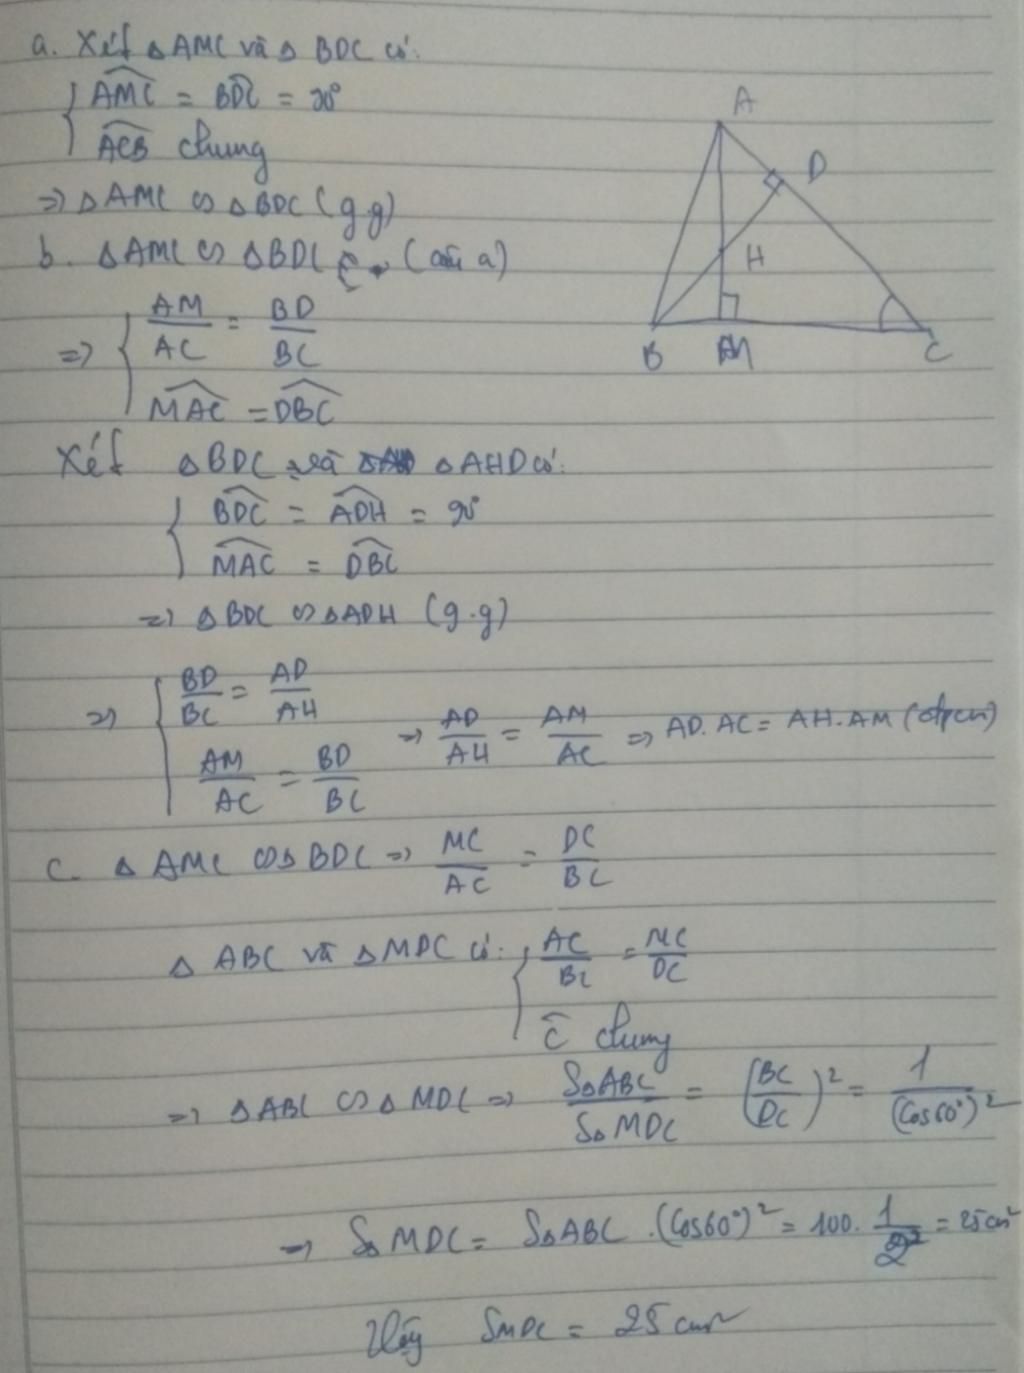 a. Xét △AMC và △ BDC có:
AMC = BDC = 90°
ACB chung
=> △AMC ∽ △BDC (g.g)
b. △AMC ∽ △BDC (câu a)
=> AM/AC = BD/BC
MAC = DBC
Xét △BDC và △AHD có:
BDC = ADH = 90°
MAC = DBC
=> △BDC ∽ △ADH (g.g)
=> BD/BC = AD/AH
AM/AC = BD/BC => AD/AH = AM/AC => AD.AC = AH.AM (đpcm)
c. △AMC ∽△BDC => MC/AC = DC/BC
△ABC và △MDC có: AC/BC = MC/DC
C chung
=> △ABC ∽△MDC => S△ABC/S△MDC = (BC/DC)² = 1/(Cos60°)²
=> S△MDC = S△ABC.(Cos60°)² = 100.1/2² = 25cm²
Vậy SMDC = 25 cm²
A
D
H
B
M
C